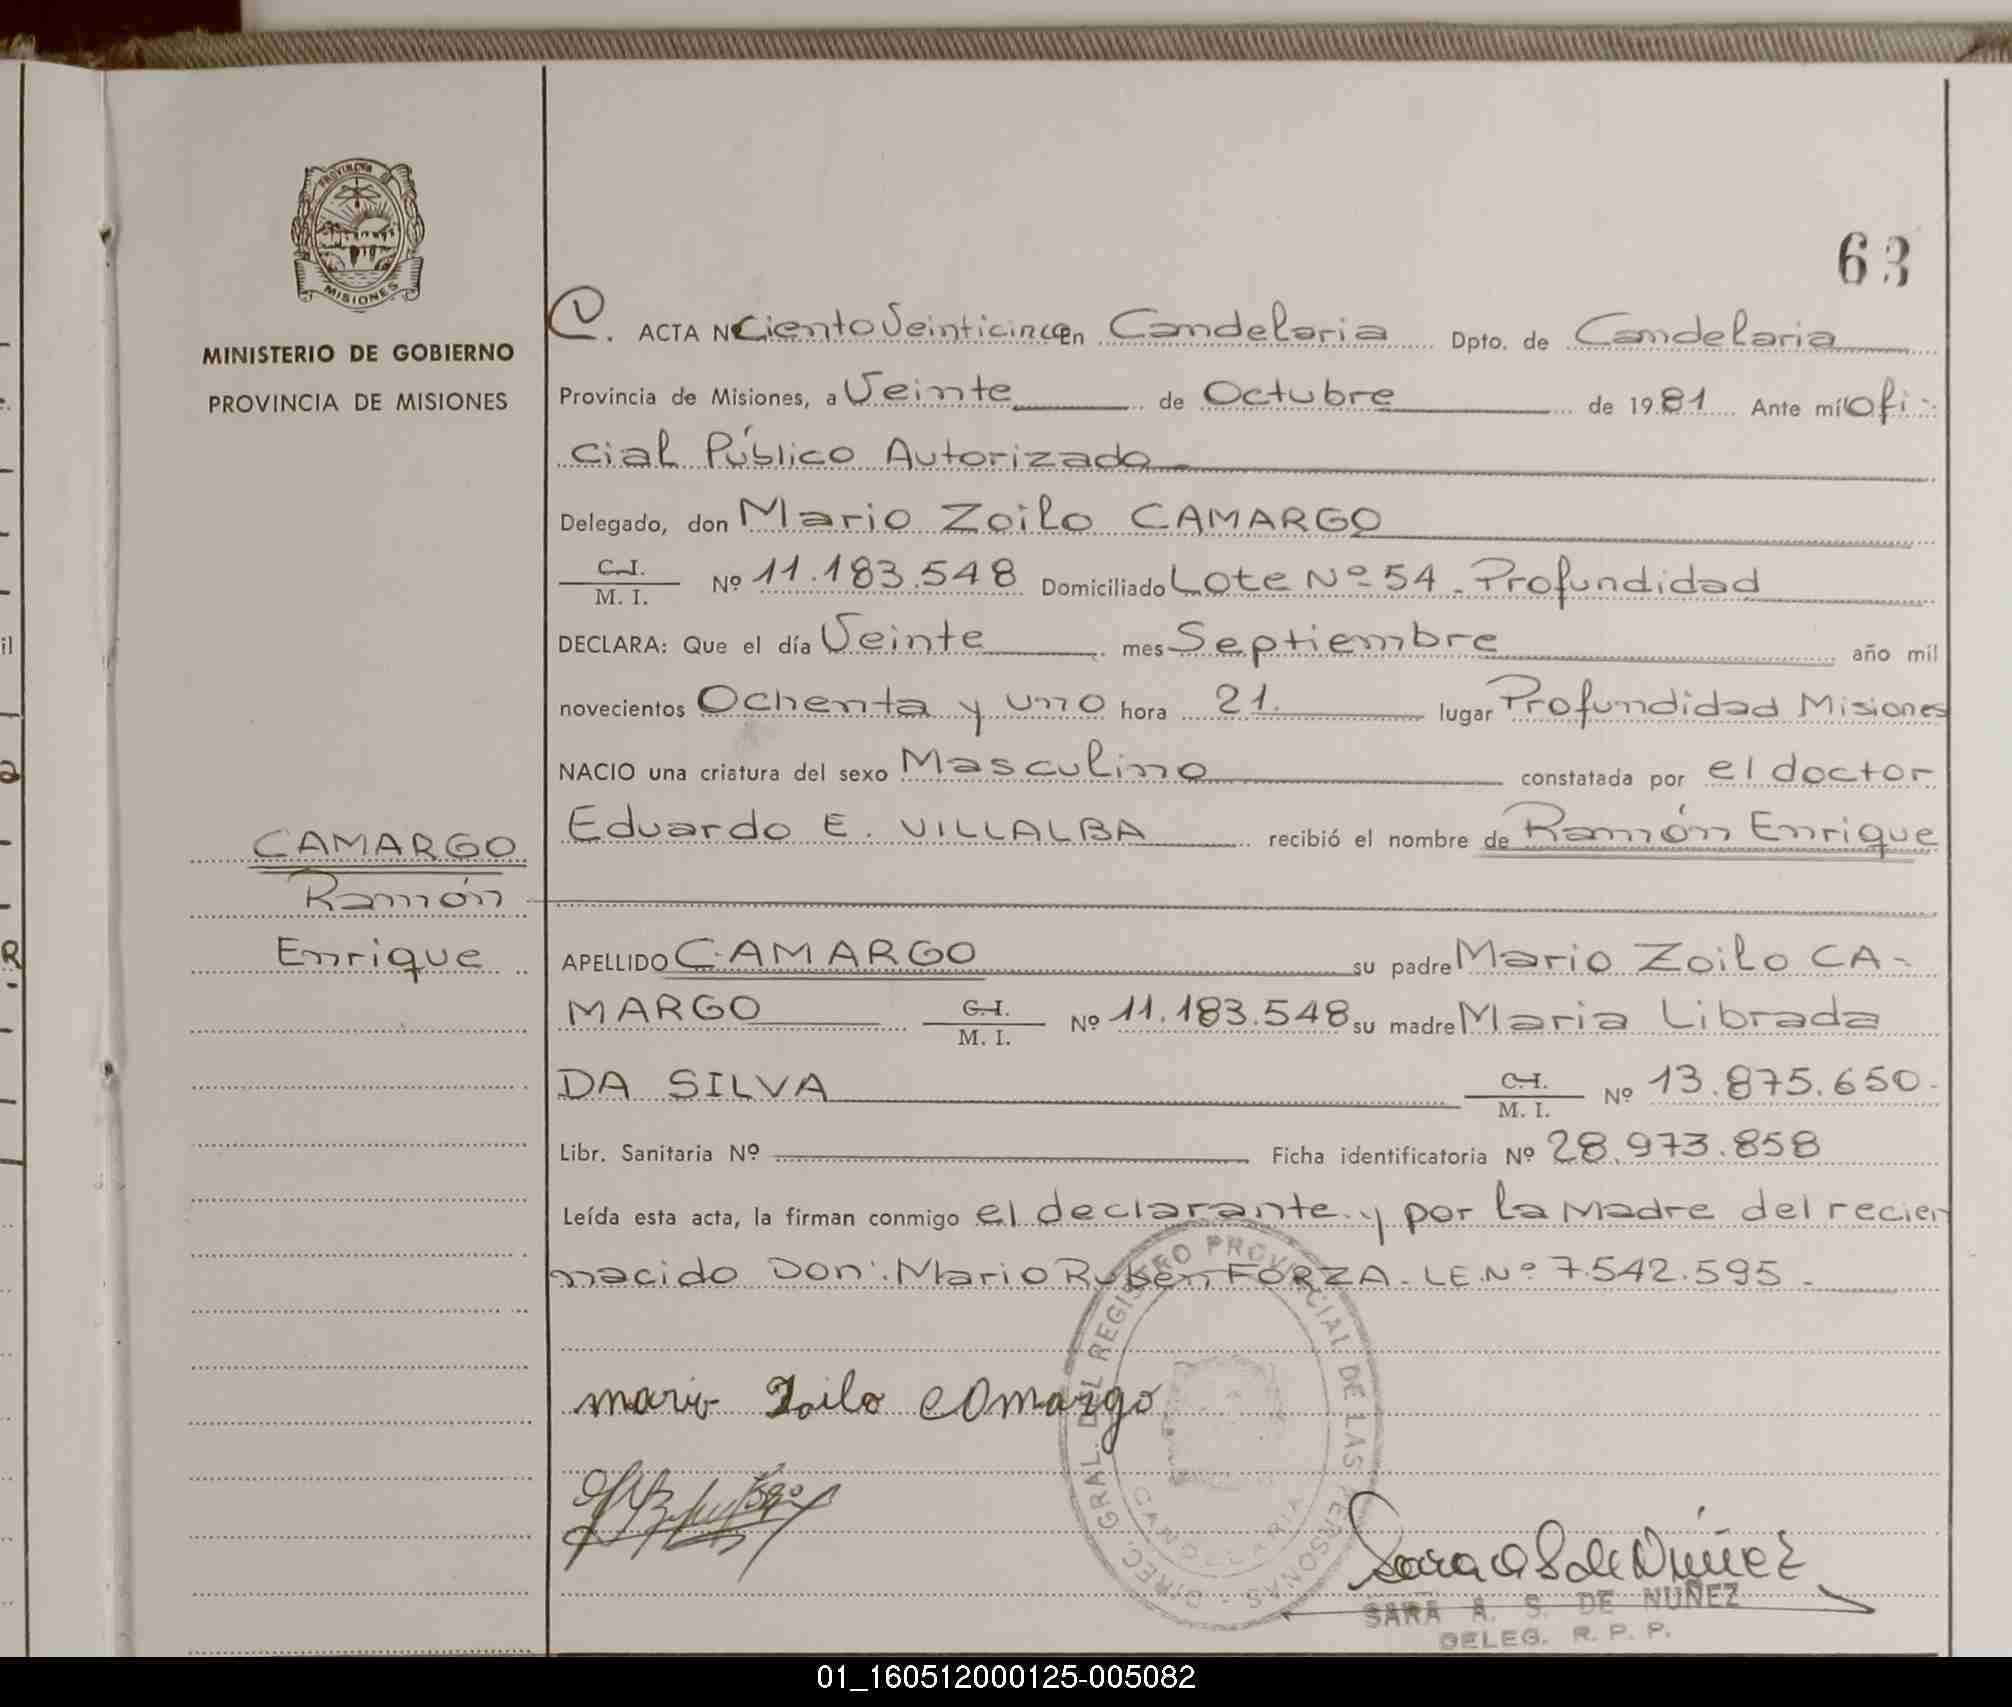 PROVINCIA
MISIONES
MINISTERIO DE GOBIERNO
PROVINCIA DE MISIONES
63
C. ACTA Nº Ciento Veinticinco en Candelaria Dpto. de Candelaria
Provincia de Misiones, a Veinte de Octubre de 1981 Ante mí Ofi-
cial Público Autorizado
Delegado, don Mario Zoilo CAMARGO
C.I. / M. I. Nº 11.183.548 Domiciliado Lote Nº 54 - Profundidad
DECLARA: Que el día Veinte mes Septiembre año mil
novecientos Ochenta y uno hora 21. lugar Profundidad Misiones
NACIO una criatura del sexo Masculino constatada por el doctor
Eduardo E. VILLALBA recibió el nombre de Ramón Enrique
CAMARGO
Ramón
Enrique
APELLIDO CAMARGO su padre Mario Zoilo CA-
MARGO C.I. / M. I. Nº 11.183.548 su madre Maria Librada
DA SILVA C.I. / M. I. Nº 13.875.650.
Libr. Sanitaria Nº Ficha identificatoria Nº 28.973.858
Leída esta acta, la firman conmigo el declarante y por la Madre del recien
nacido Don: Mario Ruben FORZA - LE.Nº 7.542.595 -
mario Zoilo Camargo
DIREC. GRAL. DEL REGISTRO PROVINCIAL DE LAS PERSONAS -
CANDELARIA
Sara A S de Núñez
SARA A. S. DE NUÑEZ
DELEG. R. P. P.
01_160512000125-005082